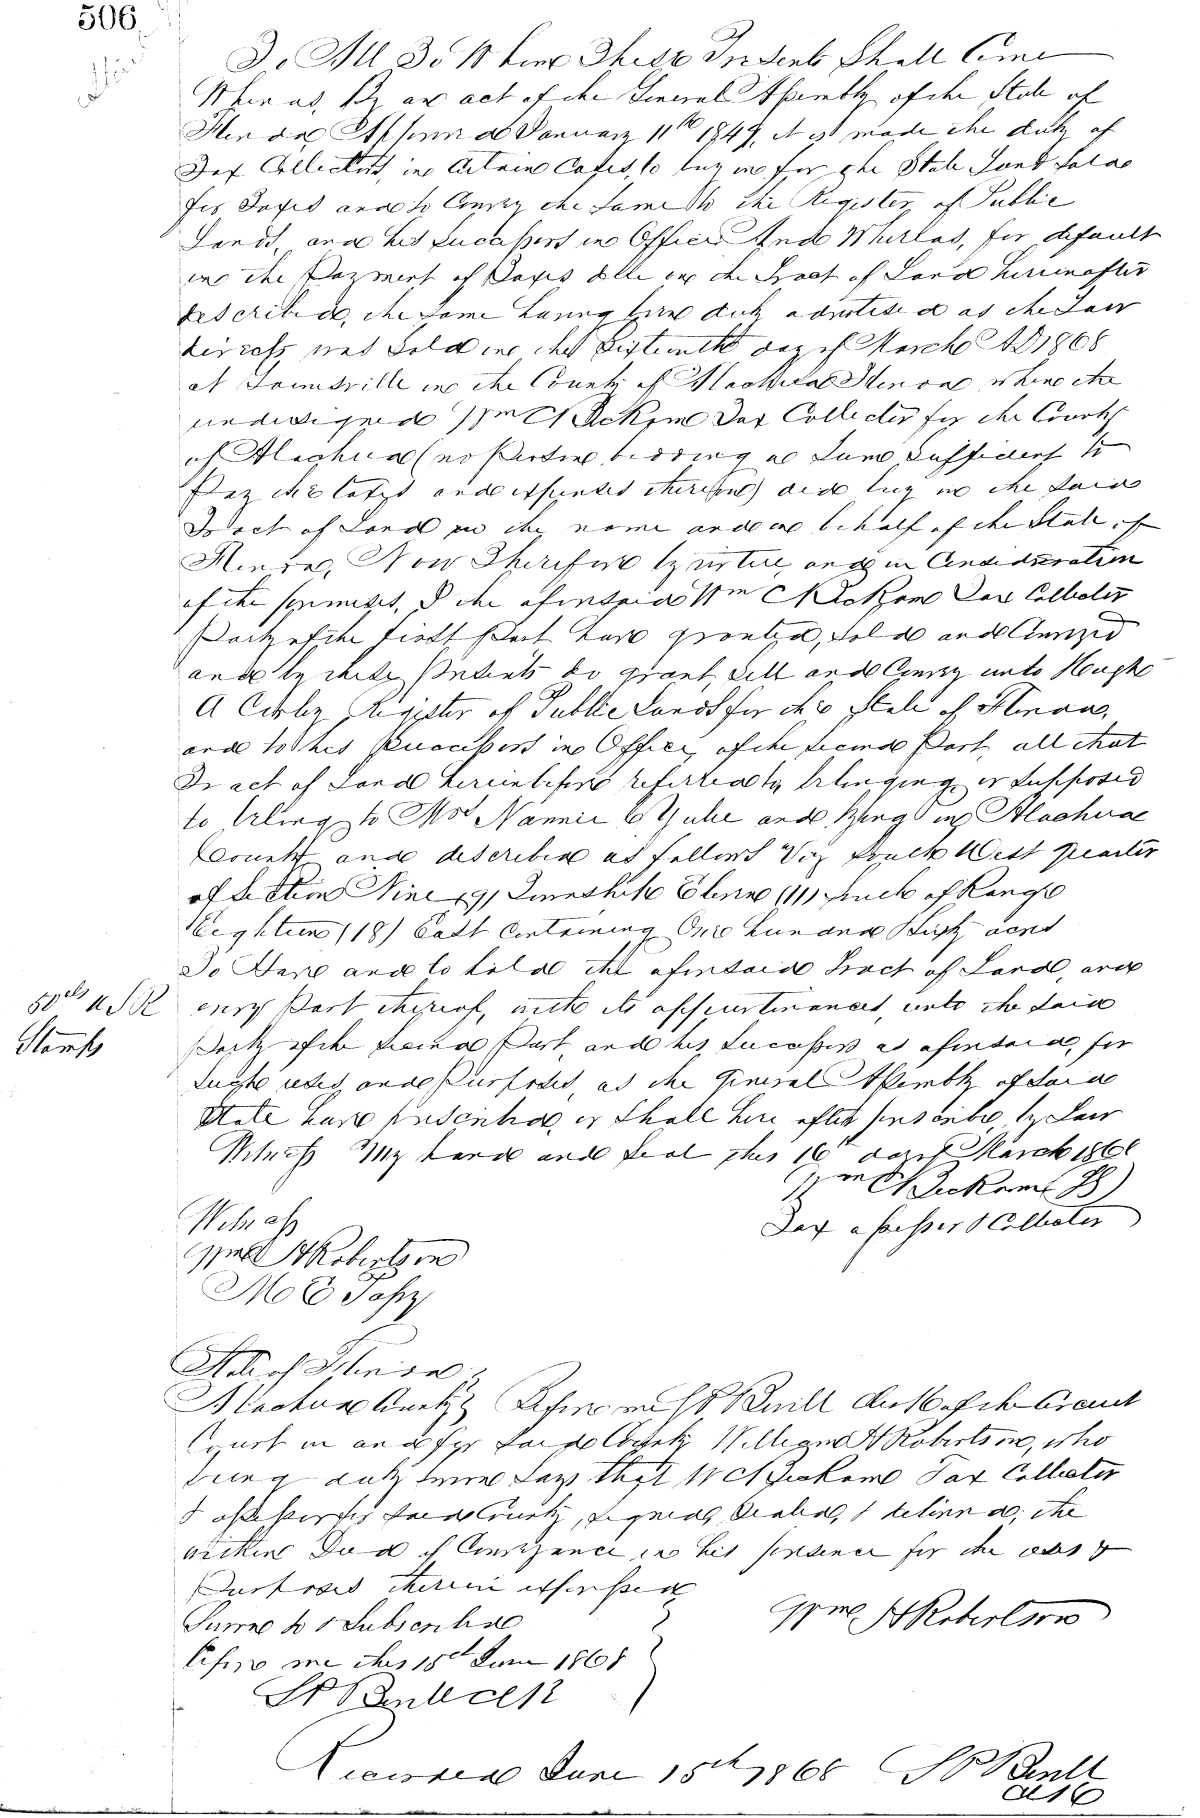 506
To All To Whom These Presents Shall Come
Whereas, By an act of the General Assembly of the State of
Florida Approved January 11th 1849, it is made the duty of
Tax Collectors, in Certain Cases, to buy in for the State Land Sold
for Taxes and to Convey the Same to the Register of Public
Lands, and his Successors in Office And Whereas, for default
in the Payment of Taxes due on the Tract of Land hereinafter
described, the same having been duly advertised as the Law
directs was Sold on the Sixteenth day of March AD 1868
at Gainesville in the County of Alachua Florida, when the
undersigned Wm C Beckom Tax Collector for the County
of Alachua (no Person bidding a Sum Sufficient to
Pay the taxes and expenses thereon) did buy in the Said
Tract of Land in the name and in behalf of the State of
Florida, Now Therefore by virtue and in Consideration
of the premises, I the aforesaid Wm C Beckom Tax Collector
Party of the first Part have granted, Sold and Conveyed
and by these Presents do grant, Sell and Convey unto Hugh
A Corley Register of Public Lands for the State of Florida,
and to his Successors in Office, of the Second Part, all that
Tract of Land hereinbefore referred to, belonging or Supposed
to belong to Mrs Nannie C Yulee and lying in Alachua
County and described as follows Viz South West quarter
of Section Nine (9) Township Eleven (11) South of Range
Eighteen (18) East Containing One hundred Sixty acres
To Have and to hold the aforesaid Tract of Land, and
50 cts U S R
every Part thereof, with its appurtenances, unto the Said
Stamps
Party of the Second Part, and his Successors as aforesaid, for
Such uses, and Purposes, as the General Assembly of Said
State have prescribed, or Shall here after prescribe, by Law
Witness My hand and Seal this 16th day of March 1868
Wm C Beckom
Tax assessor & Collector
Witness
Wm H Robertson
State of Florida
Alachua County Before me Clerk of the Circuit
Court in and for Said County William H Robertson, who
being duly Sworn Says that W C Beckom Tax Collector
& assessor for Said County, Signed, Sealed, & delivered, the
within Deed of Conveyance in his presence for the uses &
Purposes therein expressed
Wm H Robertson
Sworn to & Subscribed
before me this 15th June 1868
Recorded June 15th 1868